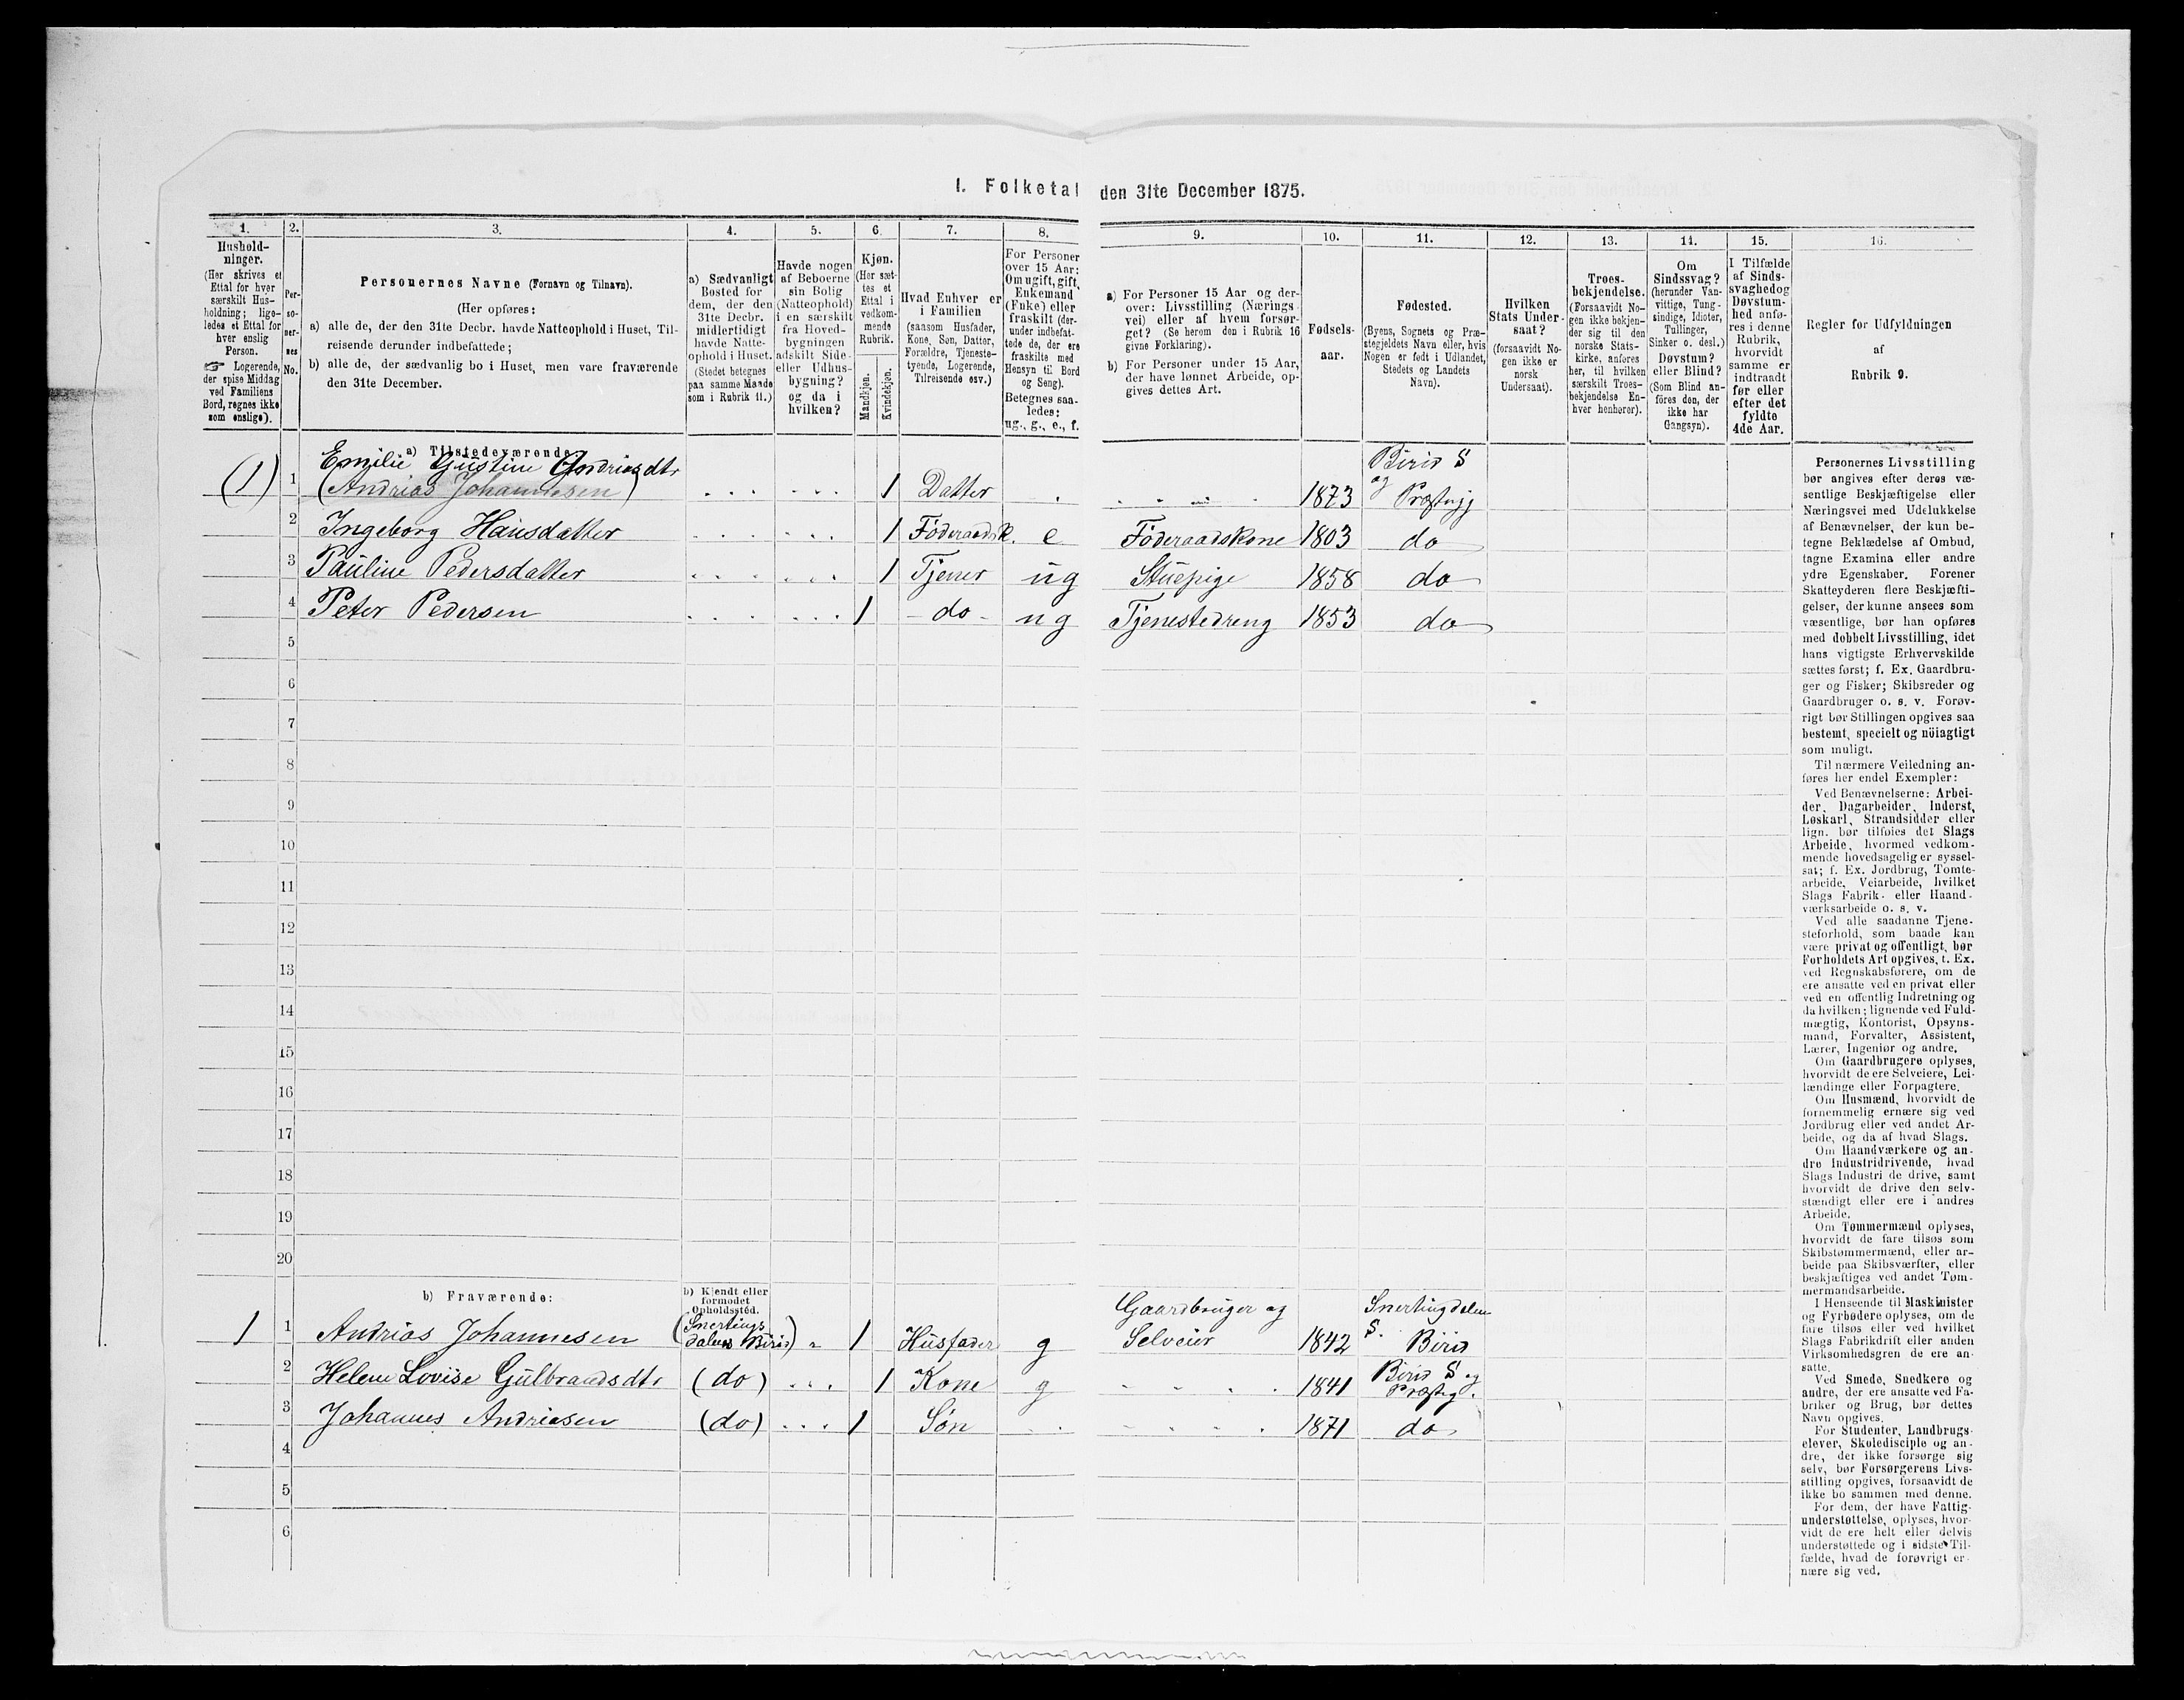 I. Folketal den 31te December 1875.
1.
Hushold-
ninger.
(Her skrives et
Ettal for hver
særskilt Hus-
holdning; lige-
ledes et Ettal for
hver enslig
Person.
☞ Logerende,
der spise Middag
ved Familiens
Bord, regnes ikke
som enslige).
2.
Per-
so-
ner-
nes
No.
3.
Personernes Navne (Fornavn og Tilnavn).
(Her opføres:
a) alle de, der den 31te Decbr. havde Natteophold i Huset, Til-
reisende derunder indbefattede;
b) alle de, der sædvanlig bo i Huset, men vare fraværende
den 31te December.
4.
a) Sædvanligt
Bosted for
dem, der den
31te Decbr.
midlertidigt
havde Natte-
ophold i Huset.
(Stedet betegnes
paa samme Maade
som i Rubrik 11.)
5.
Havde nogen
af Beboerne
sin Bolig
(Natteophold)
i en særskilt
fra Hoved-
bygningen
adskilt Side-
eller Udhus-
bygning?
og da i
hvilken?
6.
Kjøn.
(Her sæt-
tes et
Ettal i
vedkom-
mende
Rubrik.
Mandkjøn.
Kvindekjøn.
7.
Hvad Enhver er
i Familien
(saasom Husfader,
Kone, Søn, Datter,
Forældre, Tjeneste-
tyende, Logerende,
Tilreisende osv.)
8.
For Personer
over 15 Aar:
Om ugift, gift,
Enkemand
(Enke) eller
fraskilt (der-
under indbefat-
tede de, der ere
fraskilte med
Hensyn til Bord
og Seng).
Betegnes saa-
ledes:
ug., g., e., f.
9.
a) For Personer 15 Aar og der-
over: Livsstilling (Nærings-
vei) eller af hvem forsør-
get? (Se herom den i Rubrik 16
givne Forklaring).
b) For Personer under 15 Aar,
der have lønnet Arbeide, op-
gives dettes Art.
10.
Fødsels-
aar.
11.
Fødested.
(Byens, Sognets og Præ-
stegjeldets Navn eller, hvis
Nogen er født i Udlandet,
Stedets og Landets
Navn).
12.
Hvilken
Stats Under-
saat?
(forsaavidt No-
gen ikke er
norsk
Undersaat).
13.
Troes-
bekjendelse.
(Forsaavidt No-
gen ikke bekjen-
der sig til den
norske Stats-
kirke, anføres
her, til hvilken
særskilt Troes-
bekjendelse En-
hver henhører).
14.
Om
Sindssvag?
(herunder Van-
vittige, Tung-
sindige, Idioter,
Tullinger,
Sinker o. desl.)
Døvstum?
eller Blind?
(Som Blind an-
føres den, der
ikke har
Gangsyn).
15.
I Tilfælde
af Sinds-
svaghed og
Døvstum-
hed anfø-
res i denne
Rubrik,
hvorvidt
samme er
indtraadt
før eller
efter det
fyldte
4de Aar.
16.
Regler for Udfyldningen
af
Rubrik 9.
a) Tilstedeværende:
Emilie Gustine Andriasdtr
(1) 1 (Andrias Johannesen) 1 Datter 1873 Birid S og Præstegj
2 Ingeborg Hansdatter 1 Föderaadsk. e Föderaadskone 1803 do
3 Pauline Pedersdatter 1 Tjener ug Stuepige 1858 do
4 Peter Pedersen 1 do ug Tjenestedreng 1853 do
5
6
7
8
9
10
11
12
13
14
15
16
17
18
19
20
b) Fraværende:
b) Kjendt eller
formodet
Opholdssted.
1 1 Andrias Johannesen (Snertings dalens Birid) 1 Husfader g Gaardbruger og Selveier 1842 Snertingdalen S. Birid
2 Helene Lovise Gulbrandsdtr (do) 1 Kone g 1841 Birid S og Præstegj.
3 Johannes Andriasen (do) 1 Søn 1871 do
4
5
6
Personernes Livsstilling
bør angives efter deres væ-
sentlige Beskjæftigelse eller
Næringsvei med Udelukkelse
af Benævnelser, der kun be-
tegne Beklædelse af Ombud,
tagne Examina eller andre
ydre Egenskaber. Forener
Skatteyderen flere Beskjæfti-
gelser, der kunne ansees som
væsentlige, bør han opføres
med dobbelt Livsstilling, idet
hans vigtigste Erhvervskilde
sættes først; f. Ex. Gaardbru-
ger og Fisker; Skibsreder og
Gaardbruger o. s. v. Forøv-
rigt bør Stillingen opgives saa
bestemt, specielt og nöiagtigt
som muligt.
Til nærmere Veiledning an-
føres her endel Exempler:
Ved Benævnelserne: Arbei-
der, Dagarbeider, Inderst,
Løskarl, Strandsidder eller
lign. bør tilføies det Slags
Arbeide, hvormed vedkom-
mende hovedsagelig er syssel-
sat; f. Ex. Jordbrug, Tomte-
arbeide, Veiarbeide, hvilket
Slags Fabrik- eller Haand-
værksarbeide o. s. v.
Ved alle saadanne Tjene-
steforhold, som baade kan
være privat og offentligt, bør
Forholdets Art opgives, t. Ex.
ved Regnskabsførere, om de
ere ansatte ved en privat eller
ved en offentlig Indretning og
da hvilken; lignende ved Fuld-
mægtig, Kontorist, Opsyns-
mand, Forvalter, Assistent,
Lærer, Ingeniør og andre.
Om Gaardbrugere oplyses,
hvorvidt de ere Selveiere, Lei-
lændinge eller Forpagtere.
Om Husmænd, hvorvidt de
fornemmelig ernære sig ved
Jordbrug eller ved andet Ar-
beide, og da af hvad Slags.
Om Haandværkere og an-
dre Industridrivende, hvad
Slags Industri de drive, samt
hvorvidt de drive den selv-
stændigt eller ere i andres
Arbeide.
Om Tømmermænd oplyses,
hvorvidt de fare tilsøs som
Skibstømmermænd, eller ar-
beide paa Skibsværfter, eller
beskjæftiges ved andet Tøm-
mermandsarbeide.
I Henseende til Maskinister
og Fyrbødere oplyses, om de
fare tilsøs eller ved hvilket
Slags Fabrikdrift eller anden
Virksomhedsgren de ere an-
satte.
Ved Smede, Snedkere og
andre, der ere ansatte ved Fa-
briker og Brug, bør dettes
Navn opgives.
For Studenter, Landbrugs-
elever, Skoledisciple og an-
dre, der ikke forsørge sig
selv, bør Forsørgerens Livs-
stilling opgives, forsaavidt de
ikke bo sammen med denne.
For dem, der have Fattig-
understøttelse, oplyses, hvor-
vidt de ere helt eller delvis
understøttede og i sidste Til-
fælde, hvad de forøvrigt er-
nære sig ved.